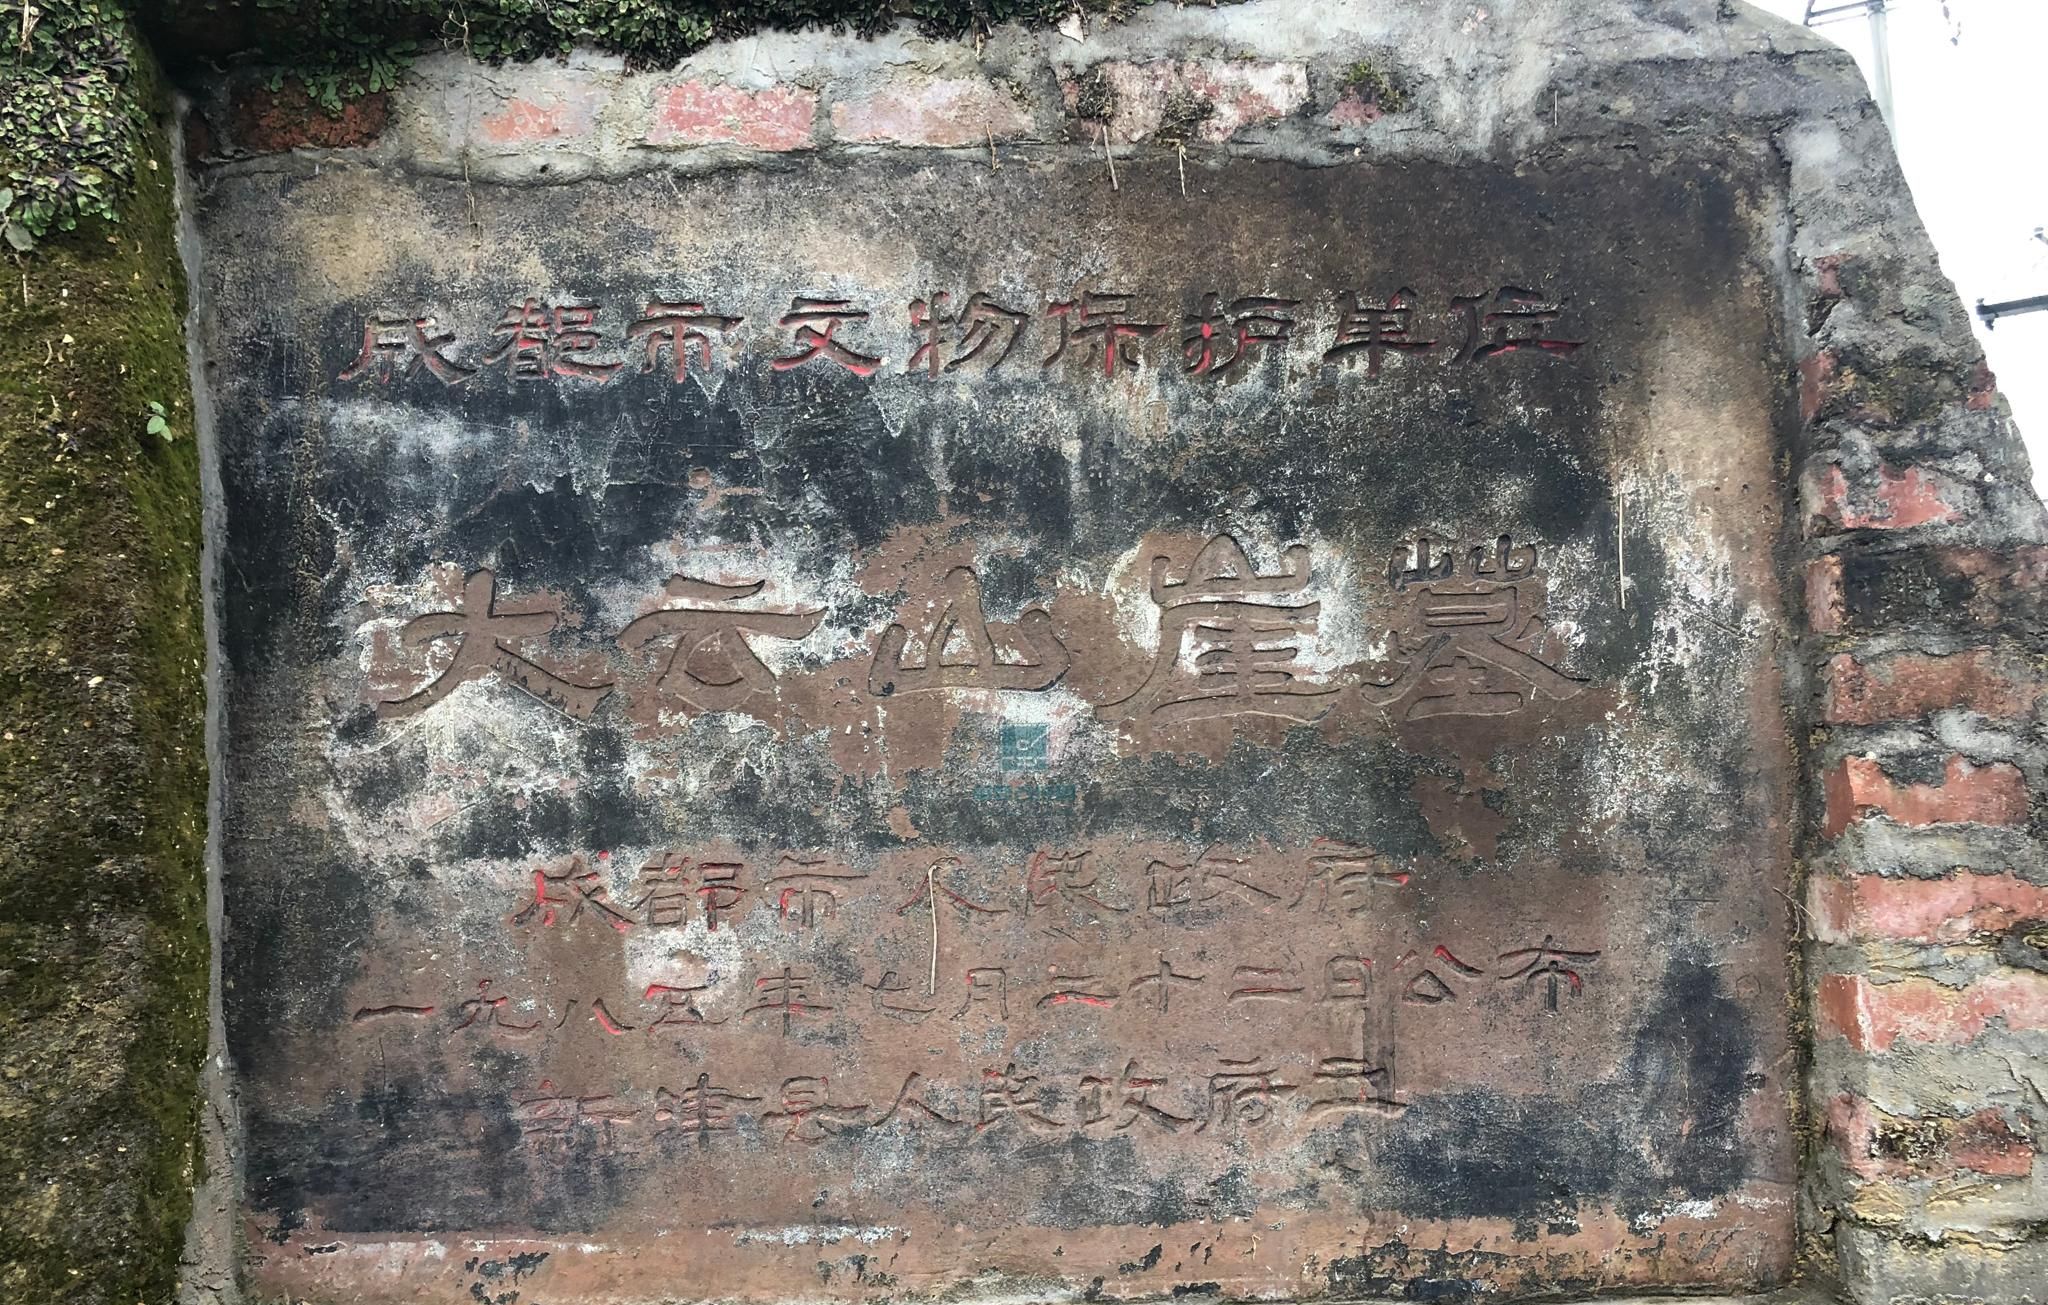 成都市文物保护单位
大云山崖墓
成都市人民政府
一九八五年七月二十二日公布
新津县人民政府立